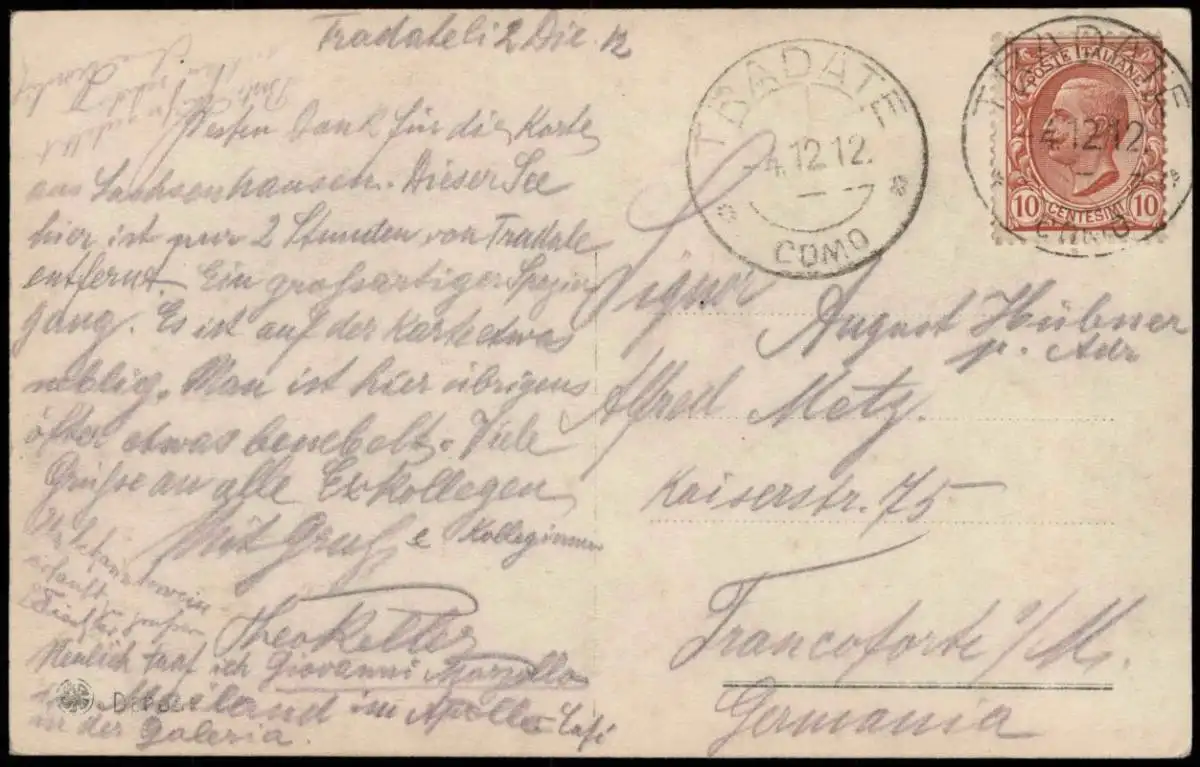 Tradate li 2 Dic. 12
Besten Dank für die Karte
aus Sachsenhausen. Dieser See
hier ist nur 2 Stunden von Tradate
entfernt. Ein großartiger Spazier
gang. Es ist auf der Karte etwas
neblig. Man ist hier übrigens
öfter etwas benebelt. Viele
Grüße an alle Exkollegen
e Kolleginnen
Mit Gruß
Theo Keller
Neulich traf ich Giovanni
Mailand im Apollo-Café
in der Galeria.
TRADATE
-4.12.12.
COMO
TRADATE
-4.12.12.
COMO
POSTE ITALIANE
10 CENTESIMI 10
Signor
August Hübner
p. Adr
Alfred Metz.
Kaiserstr. 75
Francoforte a/M.
Germania